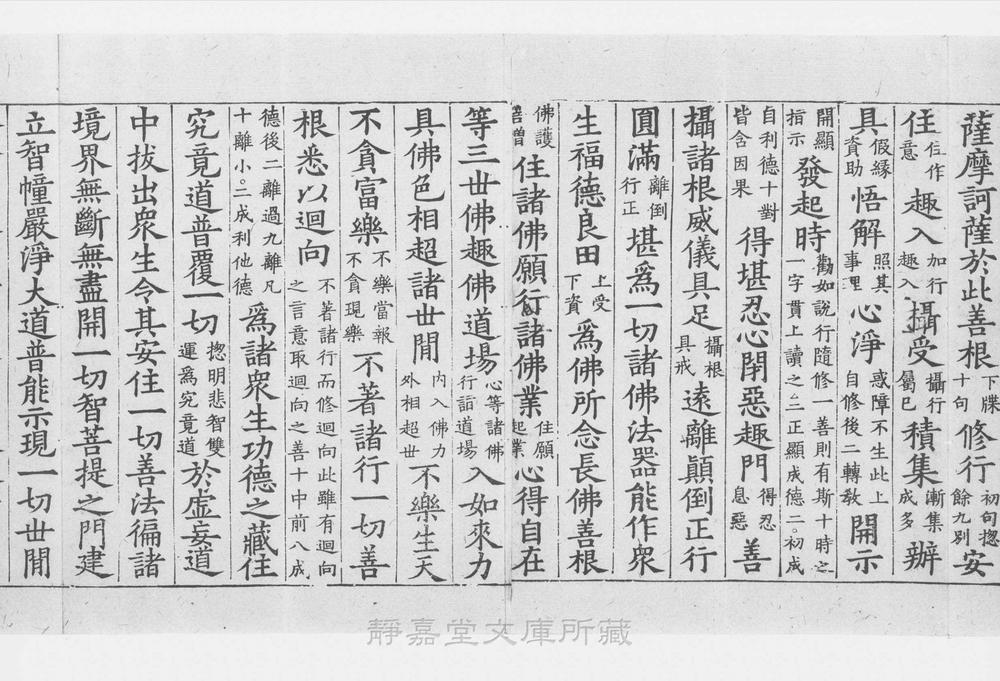 薩摩訶薩於此善根下牒十句修行初句揔餘九别安
住任作住意趣入加行趣入攝受攝行屬已積集漸集成多辦
具假緣資助悟解照其事理心淨惑障不生此上自修後二轉敎開示
開顯指示發起時勸如說行隨修一善則有斯十時之一字貫上讀之三正顯成德二。初成
自利德十對皆含因果得堪忍心閇惡趣門得忍息惡善
攝諸根威儀具足攝根具戒遠離顚倒正行
圓滿離倒行正堪爲一切諸佛法器能作衆
生福德良田上受下資爲佛所念長佛善根
佛護善增住諸佛願行諸佛業住願起業心得自在
等三世佛趣佛道場心等諸佛行詣道場入如來力
具佛色相超諸世閒內入佛力外相超世不樂生天
不貪富樂不樂當報不貪現樂不著諸行一切善
根悉以迴向不著諸行而修迴向此雖有迴向之言意取迴向之善十中前八成
德後二離過九離凡十離小。二成利他德爲諸衆生功德之藏住
究竟道普覆一切揔明悲智雙運爲究竟道於虛妄道
中拔出衆生令其安住一切善法徧諸
境界無斷無盡開一切智菩提之門建
立智幢嚴淨大道普能示現一切世閒
靜嘉堂文庫所藏